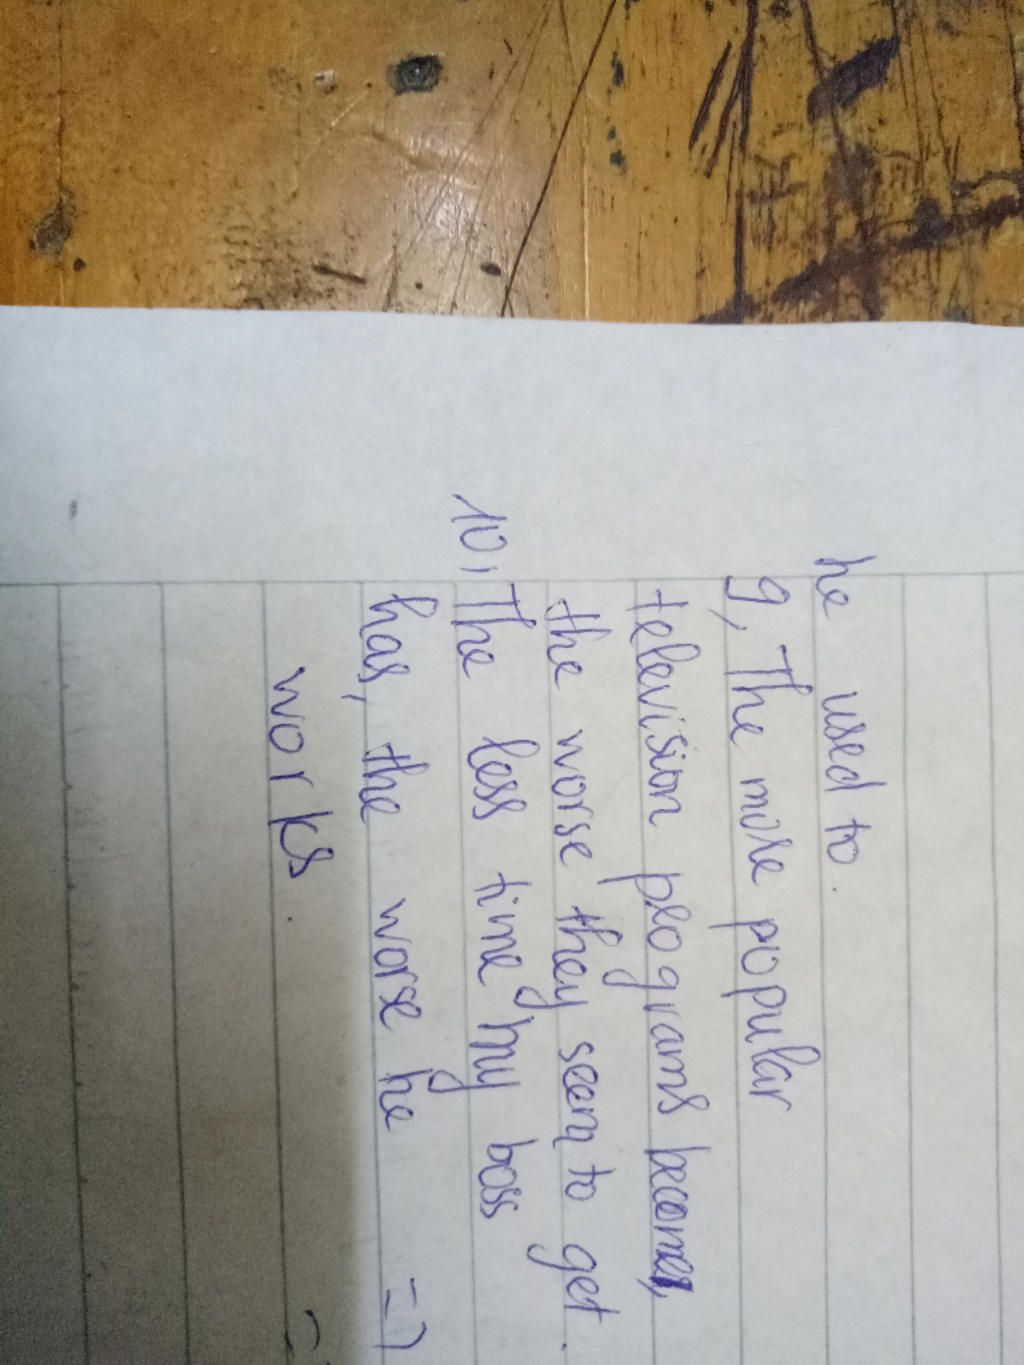 he used to.
9, The more popular
television programs become,
the worse they seem to get.
10, The less time my boss
has, the worse he =)
works.